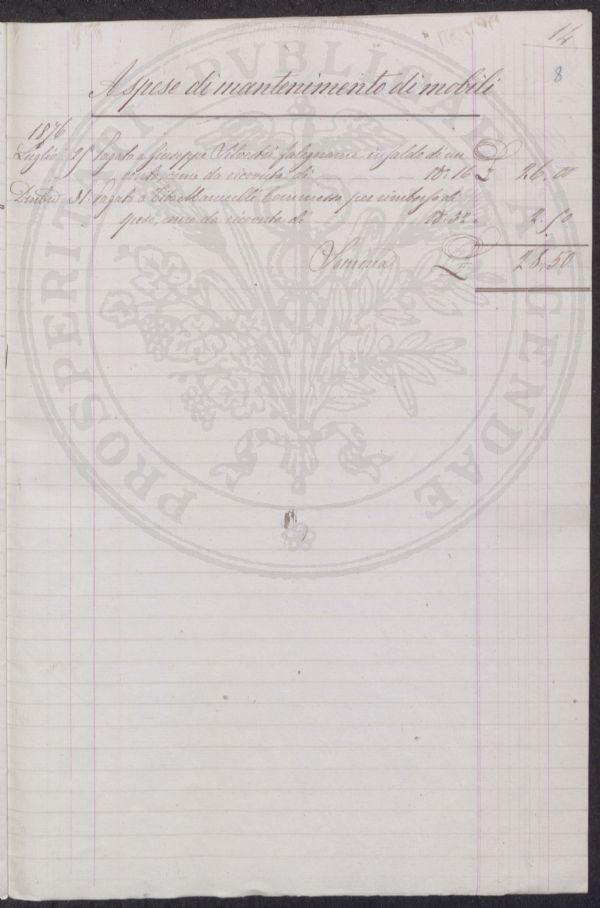 14
8
A spese di mantenimento di mobili
1876
Luglio 25 Pagato a Giuseppe falegname in saldo di un
conto, come da ricevuta di N. 16 £ 26,00
Dicbre 31 Pagato a Tito Marcucci Commesso per rimborso di
spese, come da ricevuta di N. 32 2.50
Somma £ 28,50
PROSPERITATI PVBLICAE AVGENDAE